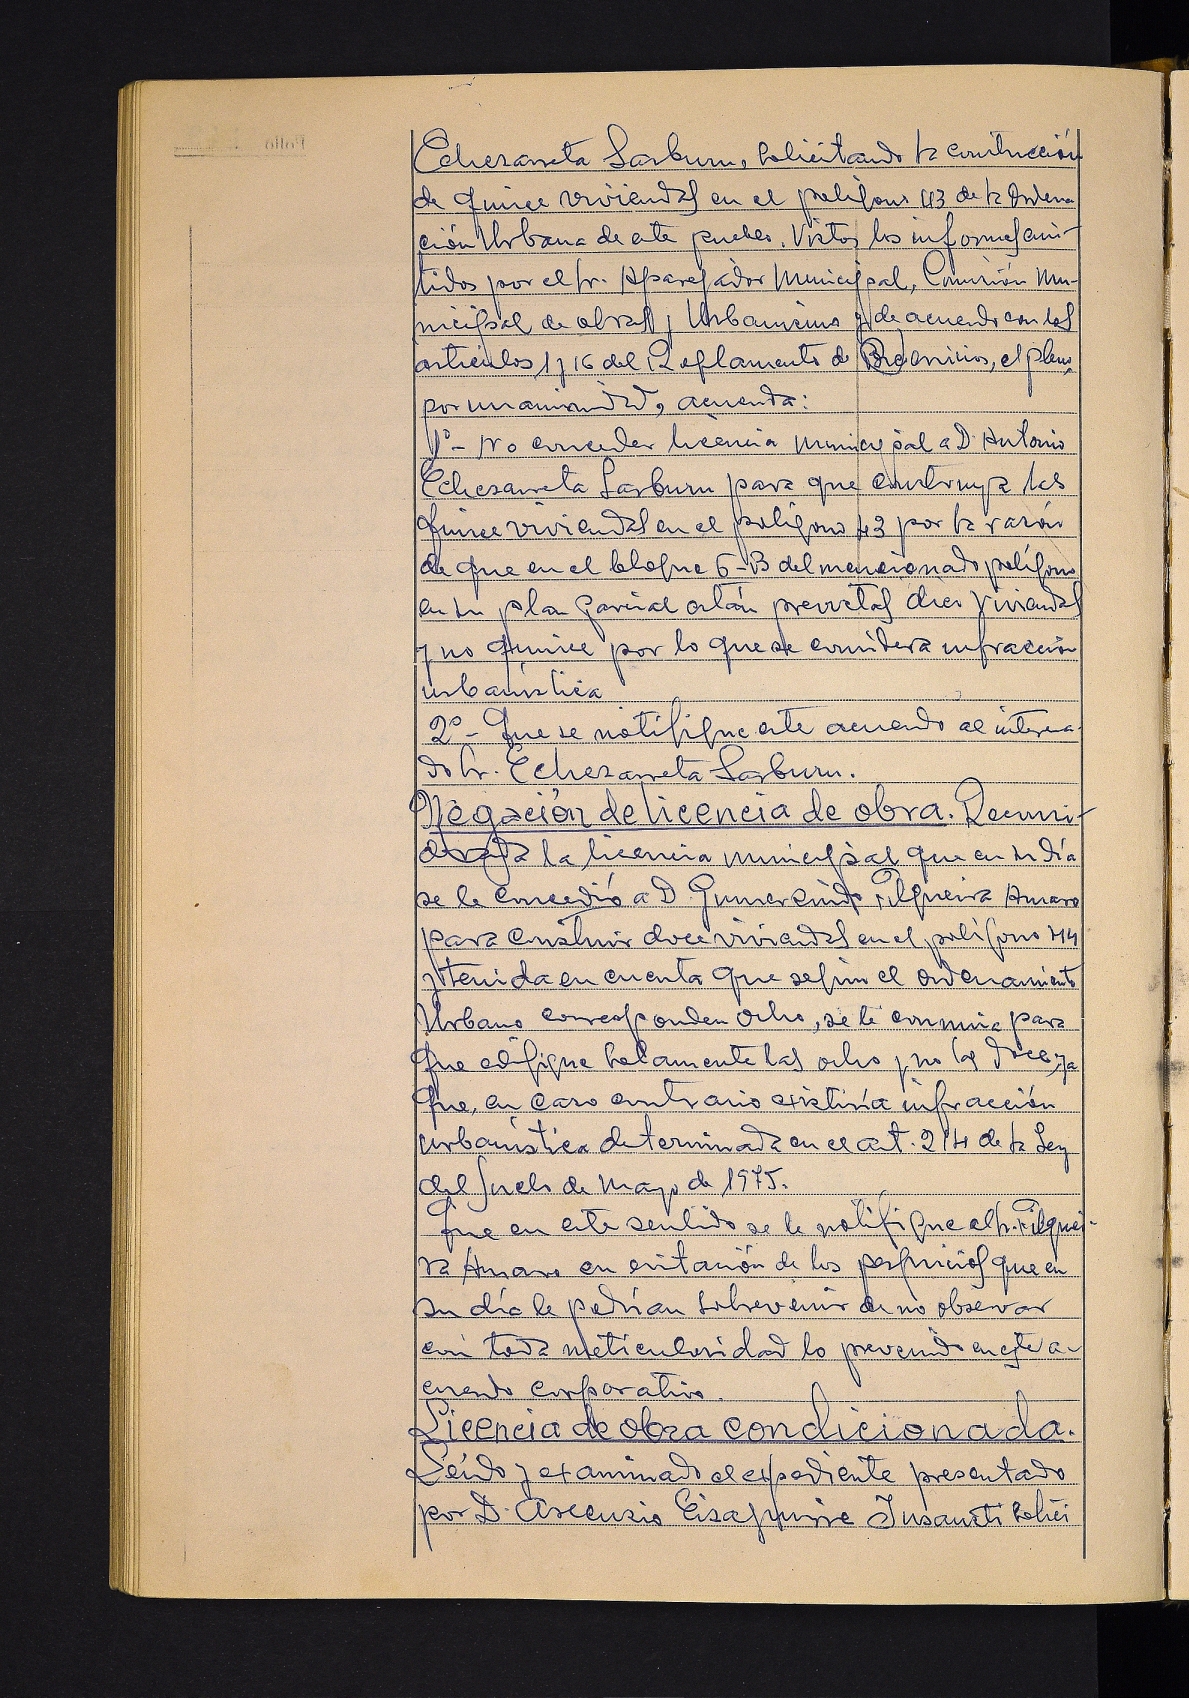 Echezarreta Sarburu, solicitando la construcción
de quince viviendas en el polígono 43 de la Ordena
ción Urbana de este pueblo. Vistos los informes emi-
tidos por el Sr. Aparejador Municipal, Comisión Mu-
nicipal de obras y Urbanismo y de acuerdo con los
artículos 1 y 16 del Reglamento de Servicios, el pleno,
por unanimidad, acuerda:
1º- No conceder licencia municipal a D. Antonio
Echezarreta Sarburu para que construya las
quince viviendas en el polígono 43 por la razón
de que en el bloque 6-B del mencionado polígono
en su plan parcial están previstas diez viviendas
y no quince por lo que se considera infracción
urbanística
2º- Que se notifique este acuerdo al interesa-
do Sr. Echezarreta Sarburu.
Negación de licencia de obra. Reconsi-
derada la licencia municipal que en su día
se le concedió a D. Gumersindo Filgueira Amaro
para construir doce viviendas en el polígono 44
y tenida en cuenta que según el ordenamiento
Urbano corresponden ocho, se le conmina para
que edifique solamente las ocho y no las doce, ya
que, en caso contrario existiría infracción
urbanística determinada en el art. 214 de la Ley
del Suelo de Mayo de 1975.
Que en este sentido se le notifique al Sr. Filguei-
ra Amaro en evitación de los perjuicios que en
su día le podrían sobrevenir de no observar
con toda meticulosidad lo prevenido en este a-
cuerdo corporativo.
Licencia de obra condicionada.
Leído y examinado el expediente presentado
por D. Ascensio Eizaguirre Insausti solici
Folio